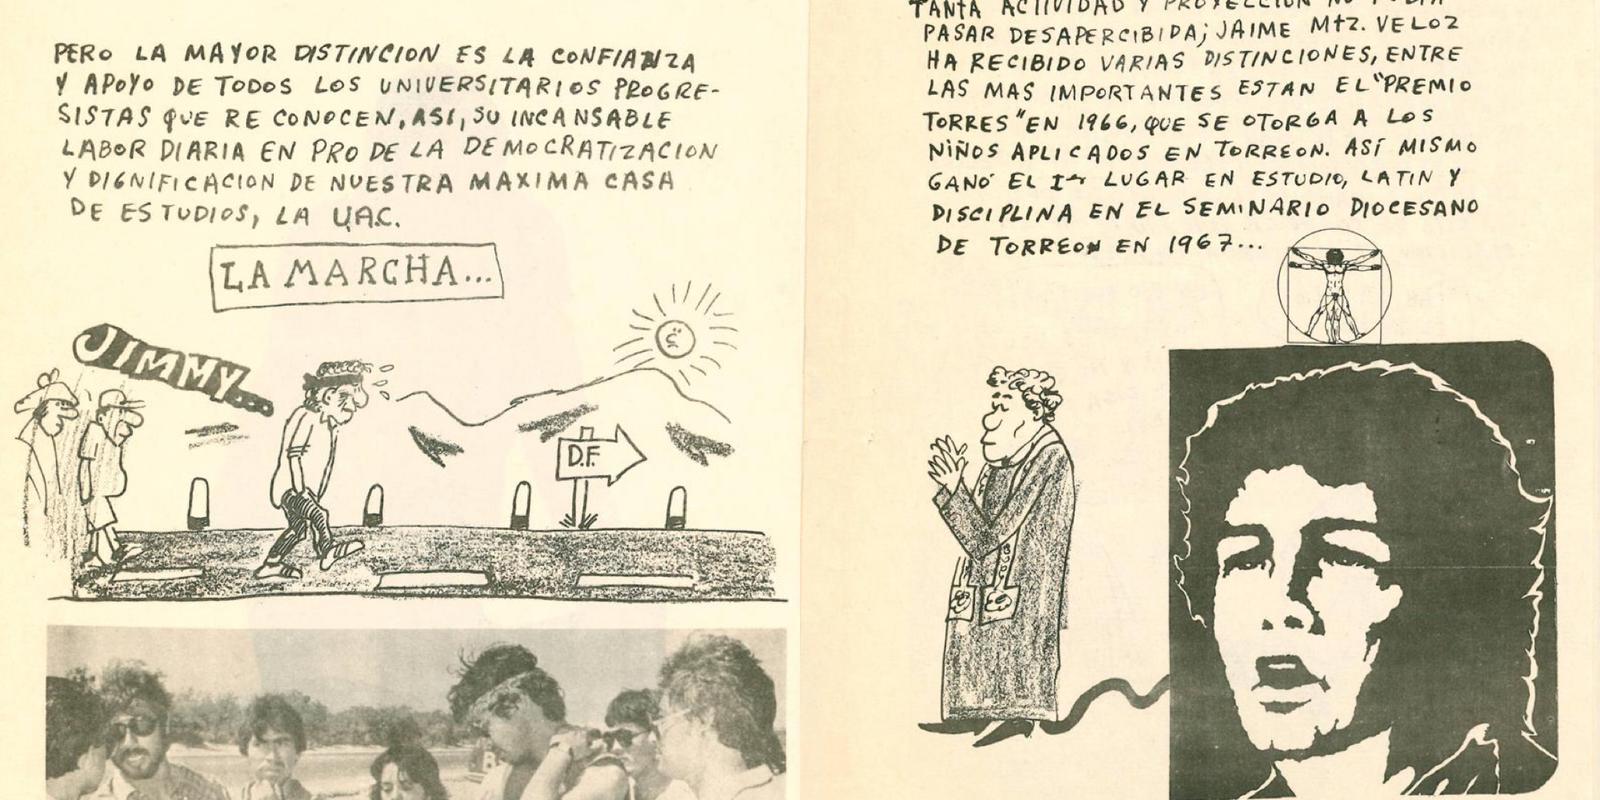 PERO LA MAYOR DISTINCION ES LA CONFIANZA
Y APOYO DE TODOS LOS UNIVERSITARIOS PROGRE-
SISTAS QUE RECONOCEN, ASI, SU INCANSABLE
LABOR DIARIA EN PRO DE LA DEMOCRATIZACION
Y DIGNIFICACION DE NUESTRA MAXIMA CASA
DE ESTUDIOS, LA U.A.C.
LA MARCHA...
JIMMY...
D.F.
TANTA ACTIVIDAD Y PROYECCION NO PODIA
PASAR DESAPERCIBIDA; JAIME MTZ. VELOZ
HA RECIBIDO VARIAS DISTINCIONES, ENTRE
LAS MAS IMPORTANTES ESTAN EL "PREMIO
TORRES" EN 1966, QUE SE OTORGA A LOS
NIÑOS APLICADOS EN TORREON. ASÍ MISMO
GANÓ EL 1er LUGAR EN ESTUDIO, LATIN Y
DISCIPLINA EN EL SEMINARIO DIOCESANO
DE TORREON EN 1967...